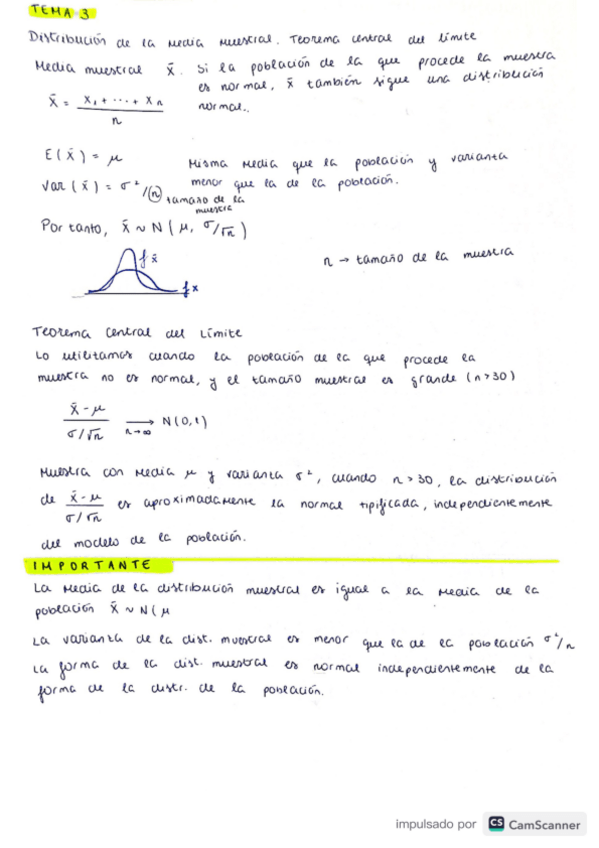 TEMA 3
Distribución de la media muestral. Teorema central del límite
Media muestral x̄. Si la población de la que procede la muestra
es normal, x̄ también sigue una distribución
normal.
x̄ = x₁ + ··· + xₙ / n
E(x̄) = μ
Misma media que la población y varianza
menor que la de la población.
Var(x̄) = σ²/n tamaño de la
muestra
Por tanto, x̄ ~ N(μ, σ/√n)
n → tamaño de la muestra
f x̄
f x
Teorema Central del Límite
Lo utilizamos cuando la población de la que procede la
muestra no es normal, y el tamaño muestral es grande (n>30)
x̄ - μ / σ/√n → n→∞ N(0,1)
Muestra con media μ y varianza σ², cuando n>30, la distribución
de x̄ - μ / σ/√n es aproximadamente la normal tipificada, independientemente
del modelo de la población.
IMPORTANTE
La media de la distribución muestral es igual a la media de la
población x̄ ~ N(μ
La varianza de la dist. muestral es menor que la de la población σ²/n
La forma de la dist. muestral es normal independientemente de la
forma de la distr. de la población.
impulsado por CS CamScanner